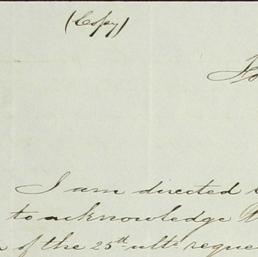 (Copy)
I am directed
to acknowledge
of the 25th ulto. reque